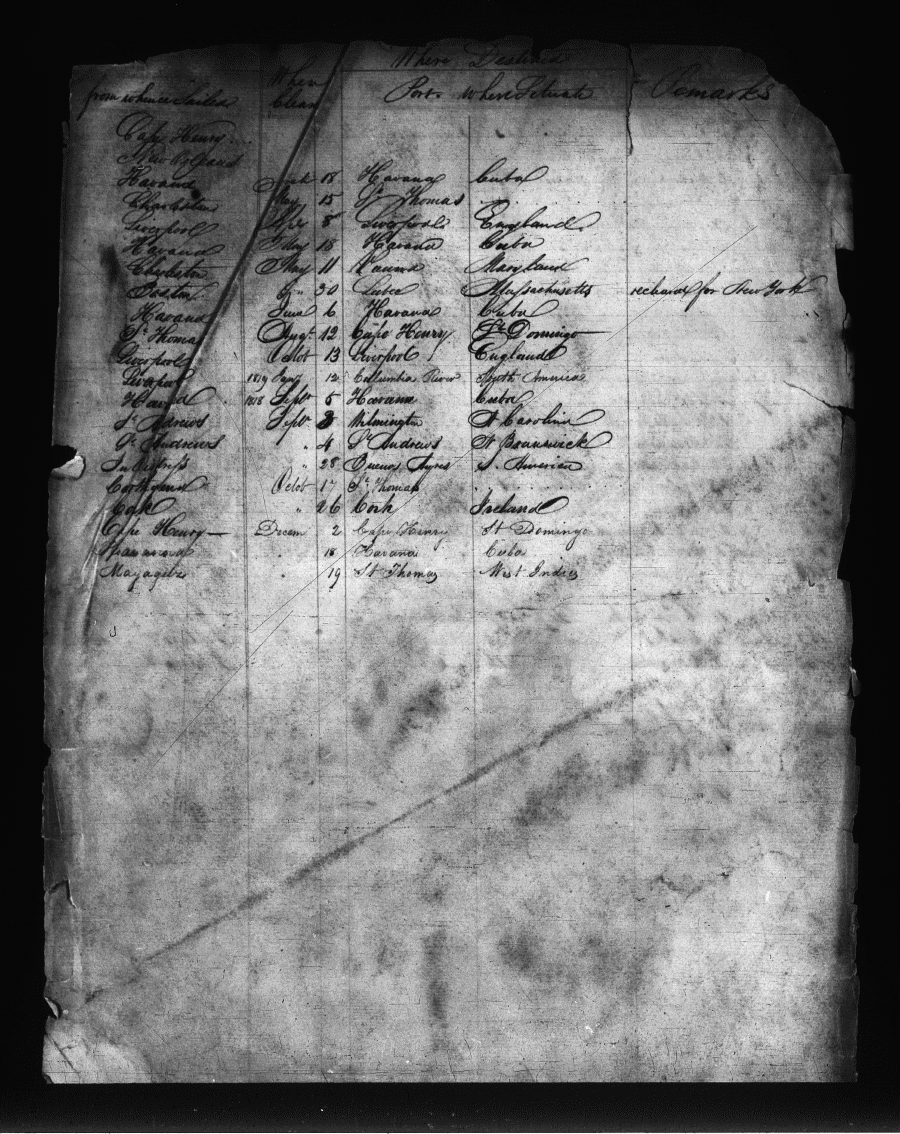 Where Destined
from whence Sailed When Clear Port Where Situate Remarks
Cape Henry
New Orleans
Havana 18 Havana Cuba
Charleston May 15 St Thomas
Liverpool 8 Liverpool England
Havana May 18 Havana Cuba
Charleston May 11 Maryland
Boston " 30 Lubec Massachusetts for New York
Havana June 6 Havana Cuba
St Thomas Augt 12 Cape Henry St Domingo
Liverpool Octob 13 Liverpool England
Liverpool 1819 Jany 12 Columbia River South America
Havana 1818 Septr 5 Havana Cuba
St Andrews Septr 3 Wilmington N Carolina
St Andrews " 4 St Andrews N Brunswick
In distress " 28 Buenos Ayres S. America
Carthagena Octob 17 St Thomas
Cork " 26 Cork Ireland
Cape Henry Decem 2 Cape Henry St Domingo
" 18 Havana Cuba
" 19 St Thomas West Indies